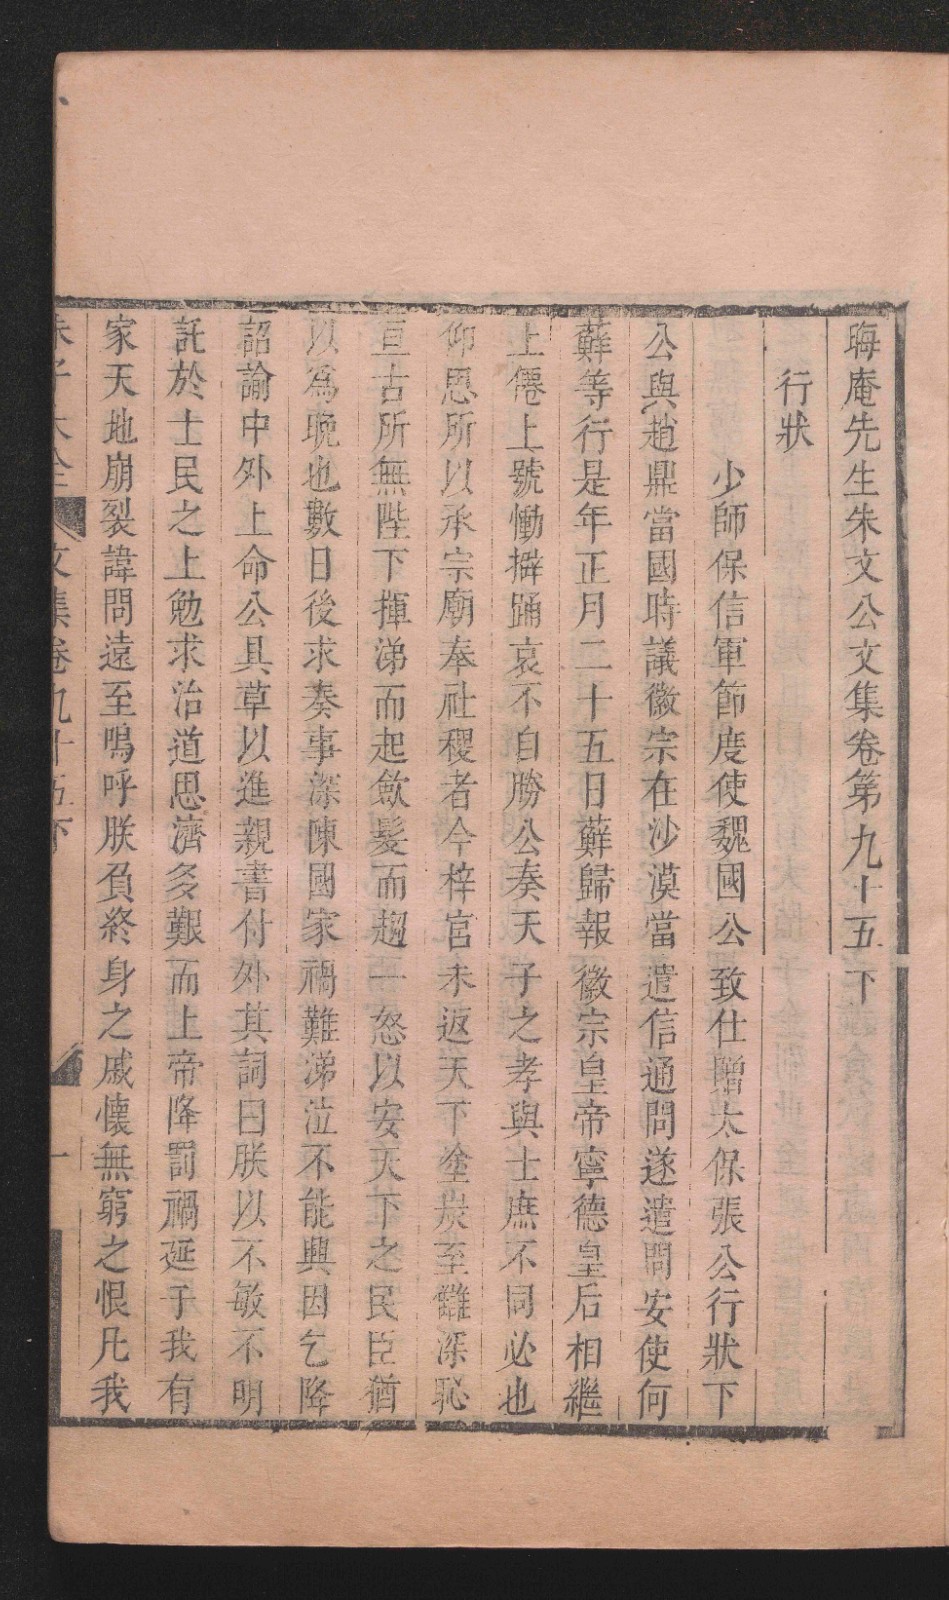 晦庵先生朱文公文集卷第九十五下
行狀
少師保信軍節度使魏國公致仕贈太保張公行狀下
公與趙鼎當國時議徽宗在沙漠當遣信通問遂遣問安使何
蘚等行是年正月二十五日蘚歸報徽宗皇帝寧德皇后相繼
上僊上號慟擗踊哀不自勝公奏天子之孝與士庶不同必也
仰思所以承宗廟奉社稷者今梓宮未返天下塗炭至讎深恥
亘古所無陛下揮涕而起歛髮而趨一怒以安天下之民臣猶
以為晚也數日後求奏事深陳國家禍難涕泣不能興因乞降
詔諭中外上命公具草以進親書付外其詞曰朕以不敏不明
託於士民之上勉求治道思濟多艱而上帝降罰禍延于我有
家天地崩裂諱問遠至嗚呼朕負終身之戚懷無窮之恨凡我
朱子大全 文集卷九十五下 一